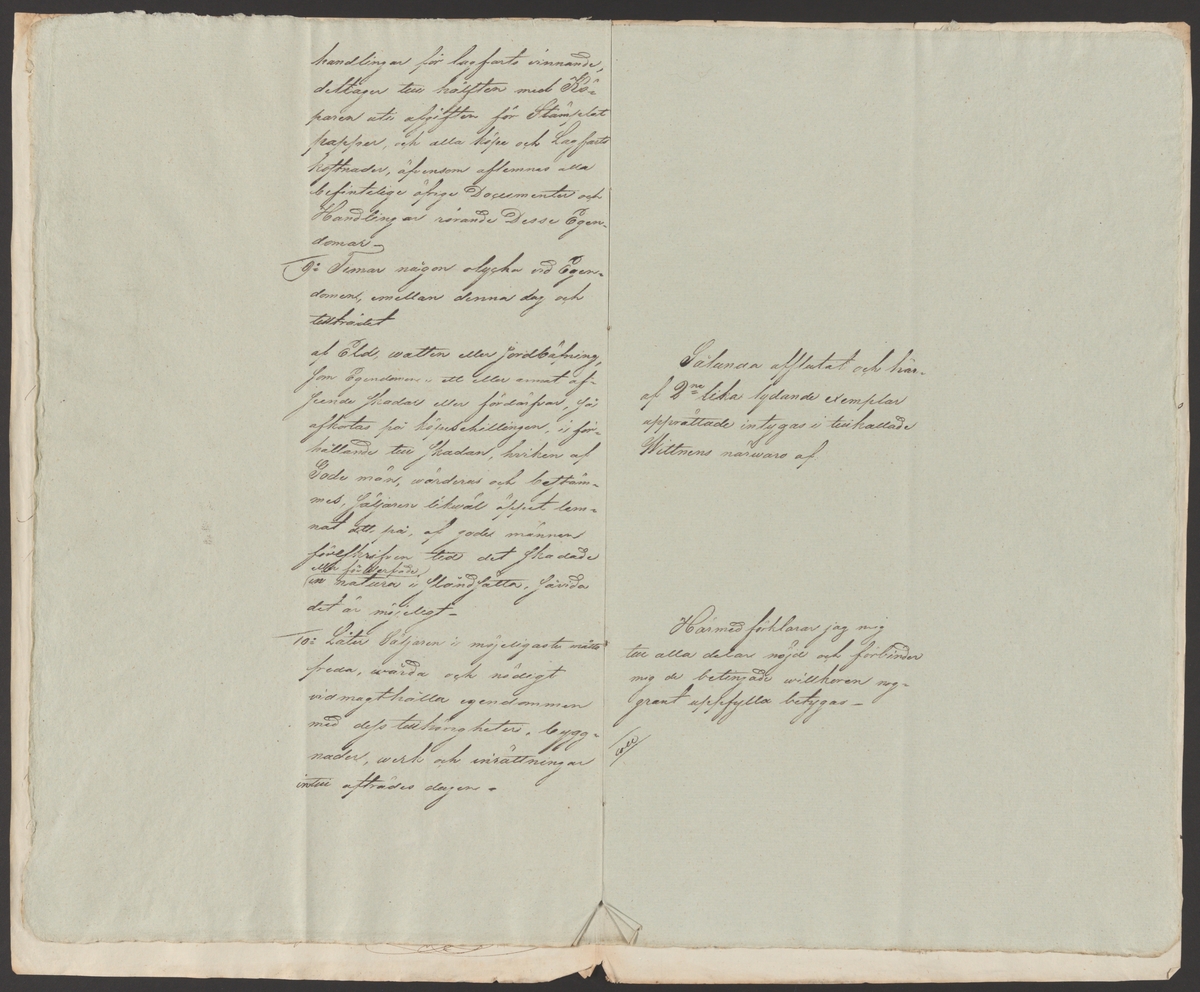 handlingar för lagfarts vinnande,
deltager till hälften med Kö-
paren uti afgiften för Stämplat
papper, och alla köpe och Lagfarts
kostnader, äfvensom aflemnas alla
befintelige öfrige Documenter och
Handlingar rörande Desse Egen-
domar_
9o: Timar någon olycka vid Egen-
domen, emellan denna dag och
tillträdet
af Eld, watten eller jordbäfning,
som Egendomen i ett eller annat af-
seende skadar eller fördärfvar, så
afkortas på köpeschillingen, i för-
hållande till skadan, hvilken af
Gode män, wärderas och bestäm-
mes, Säljaren likwäl öppet lem-
nat att på, af godes männen
föreskrifven tid det skadade
eller förderfvade
in natura i Ståndsätta, såvida
det är möjeligt_
10o: Låter Säljaren i möjeligaste måtto
freda, wårda och nödigt
vidmagthålla egendommen
med dess tillhörigheter, bygg-
nader, werk och inrättningar
intill afträdes dagen.
Sålunda afslutat och här-
af 2ne lika lydande exemplar
upprättade intygas i tillkallade
Wittnens närwaro af
Härmed förklarar jag mig
till alla delar nöjd och förbinder
mig de betingade willkoren nog-
grant uppfylla betygas_